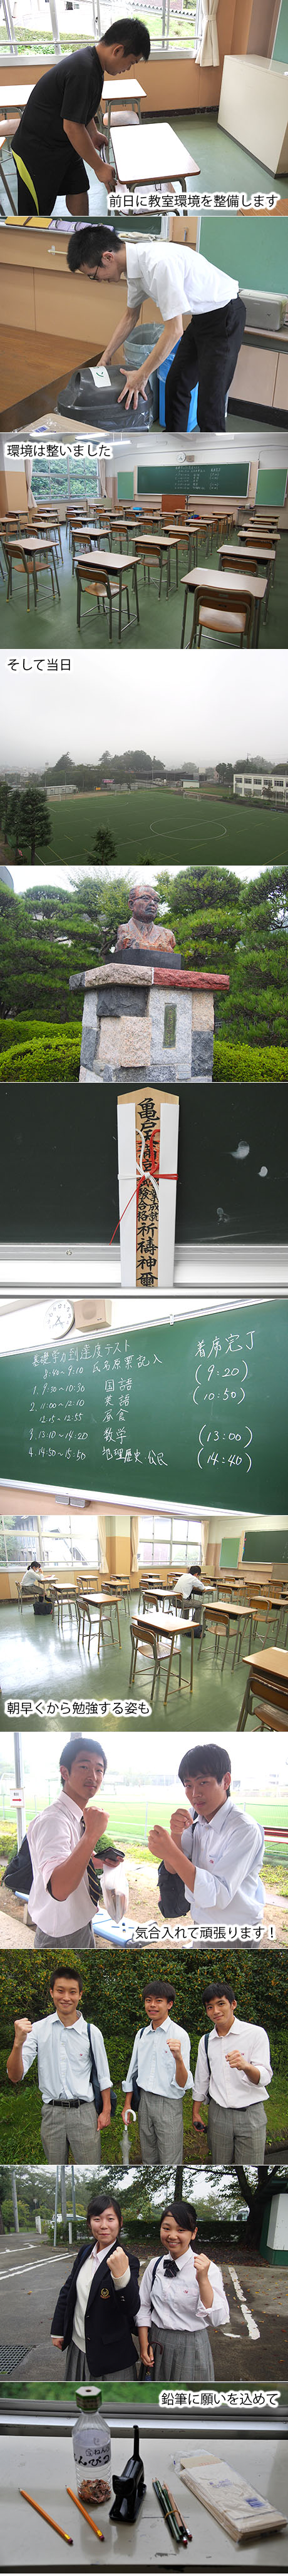 前日に教室環境を整備します
環境は整いました
そして当日
亀戸天満宮
合格祈禱神璽
基礎学力到達度テスト
8:40~9:10 氏名原票記入
1. 9:30~10:30 国語
2. 11:00~12:10 英語
12:15~12:55 昼食
3. 13:10~14:20 数学
4. 14:50~15:50 地理歴史・公民
着席完了
(9:20)
(10:50)
(13:00)
(14:40)
朝早くから勉強する姿も
気合入れて頑張ります!
鉛筆に願いを込めて